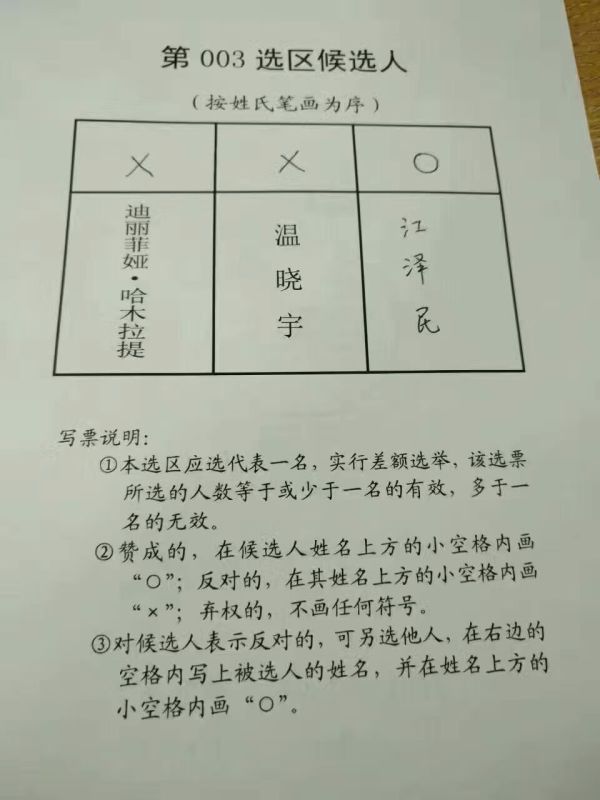 第 003 选区候选人
（按姓氏笔画为序）
× × ○
迪丽菲娅·哈木拉提
温晓宇
江泽民
写票说明：
①本选区应选代表一名，实行差额选举，该选票
所选的人数等于或少于一名的有效，多于一
名的无效。
②赞成的，在候选人姓名上方的小空格内画
“○”；反对的，在其姓名上方的小空格内画
“×”；弃权的，不画任何符号。
③对候选人表示反对的，可另选他人，在右边的
空格内写上被选人的姓名，并在姓名上方的
小空格内画“○”。